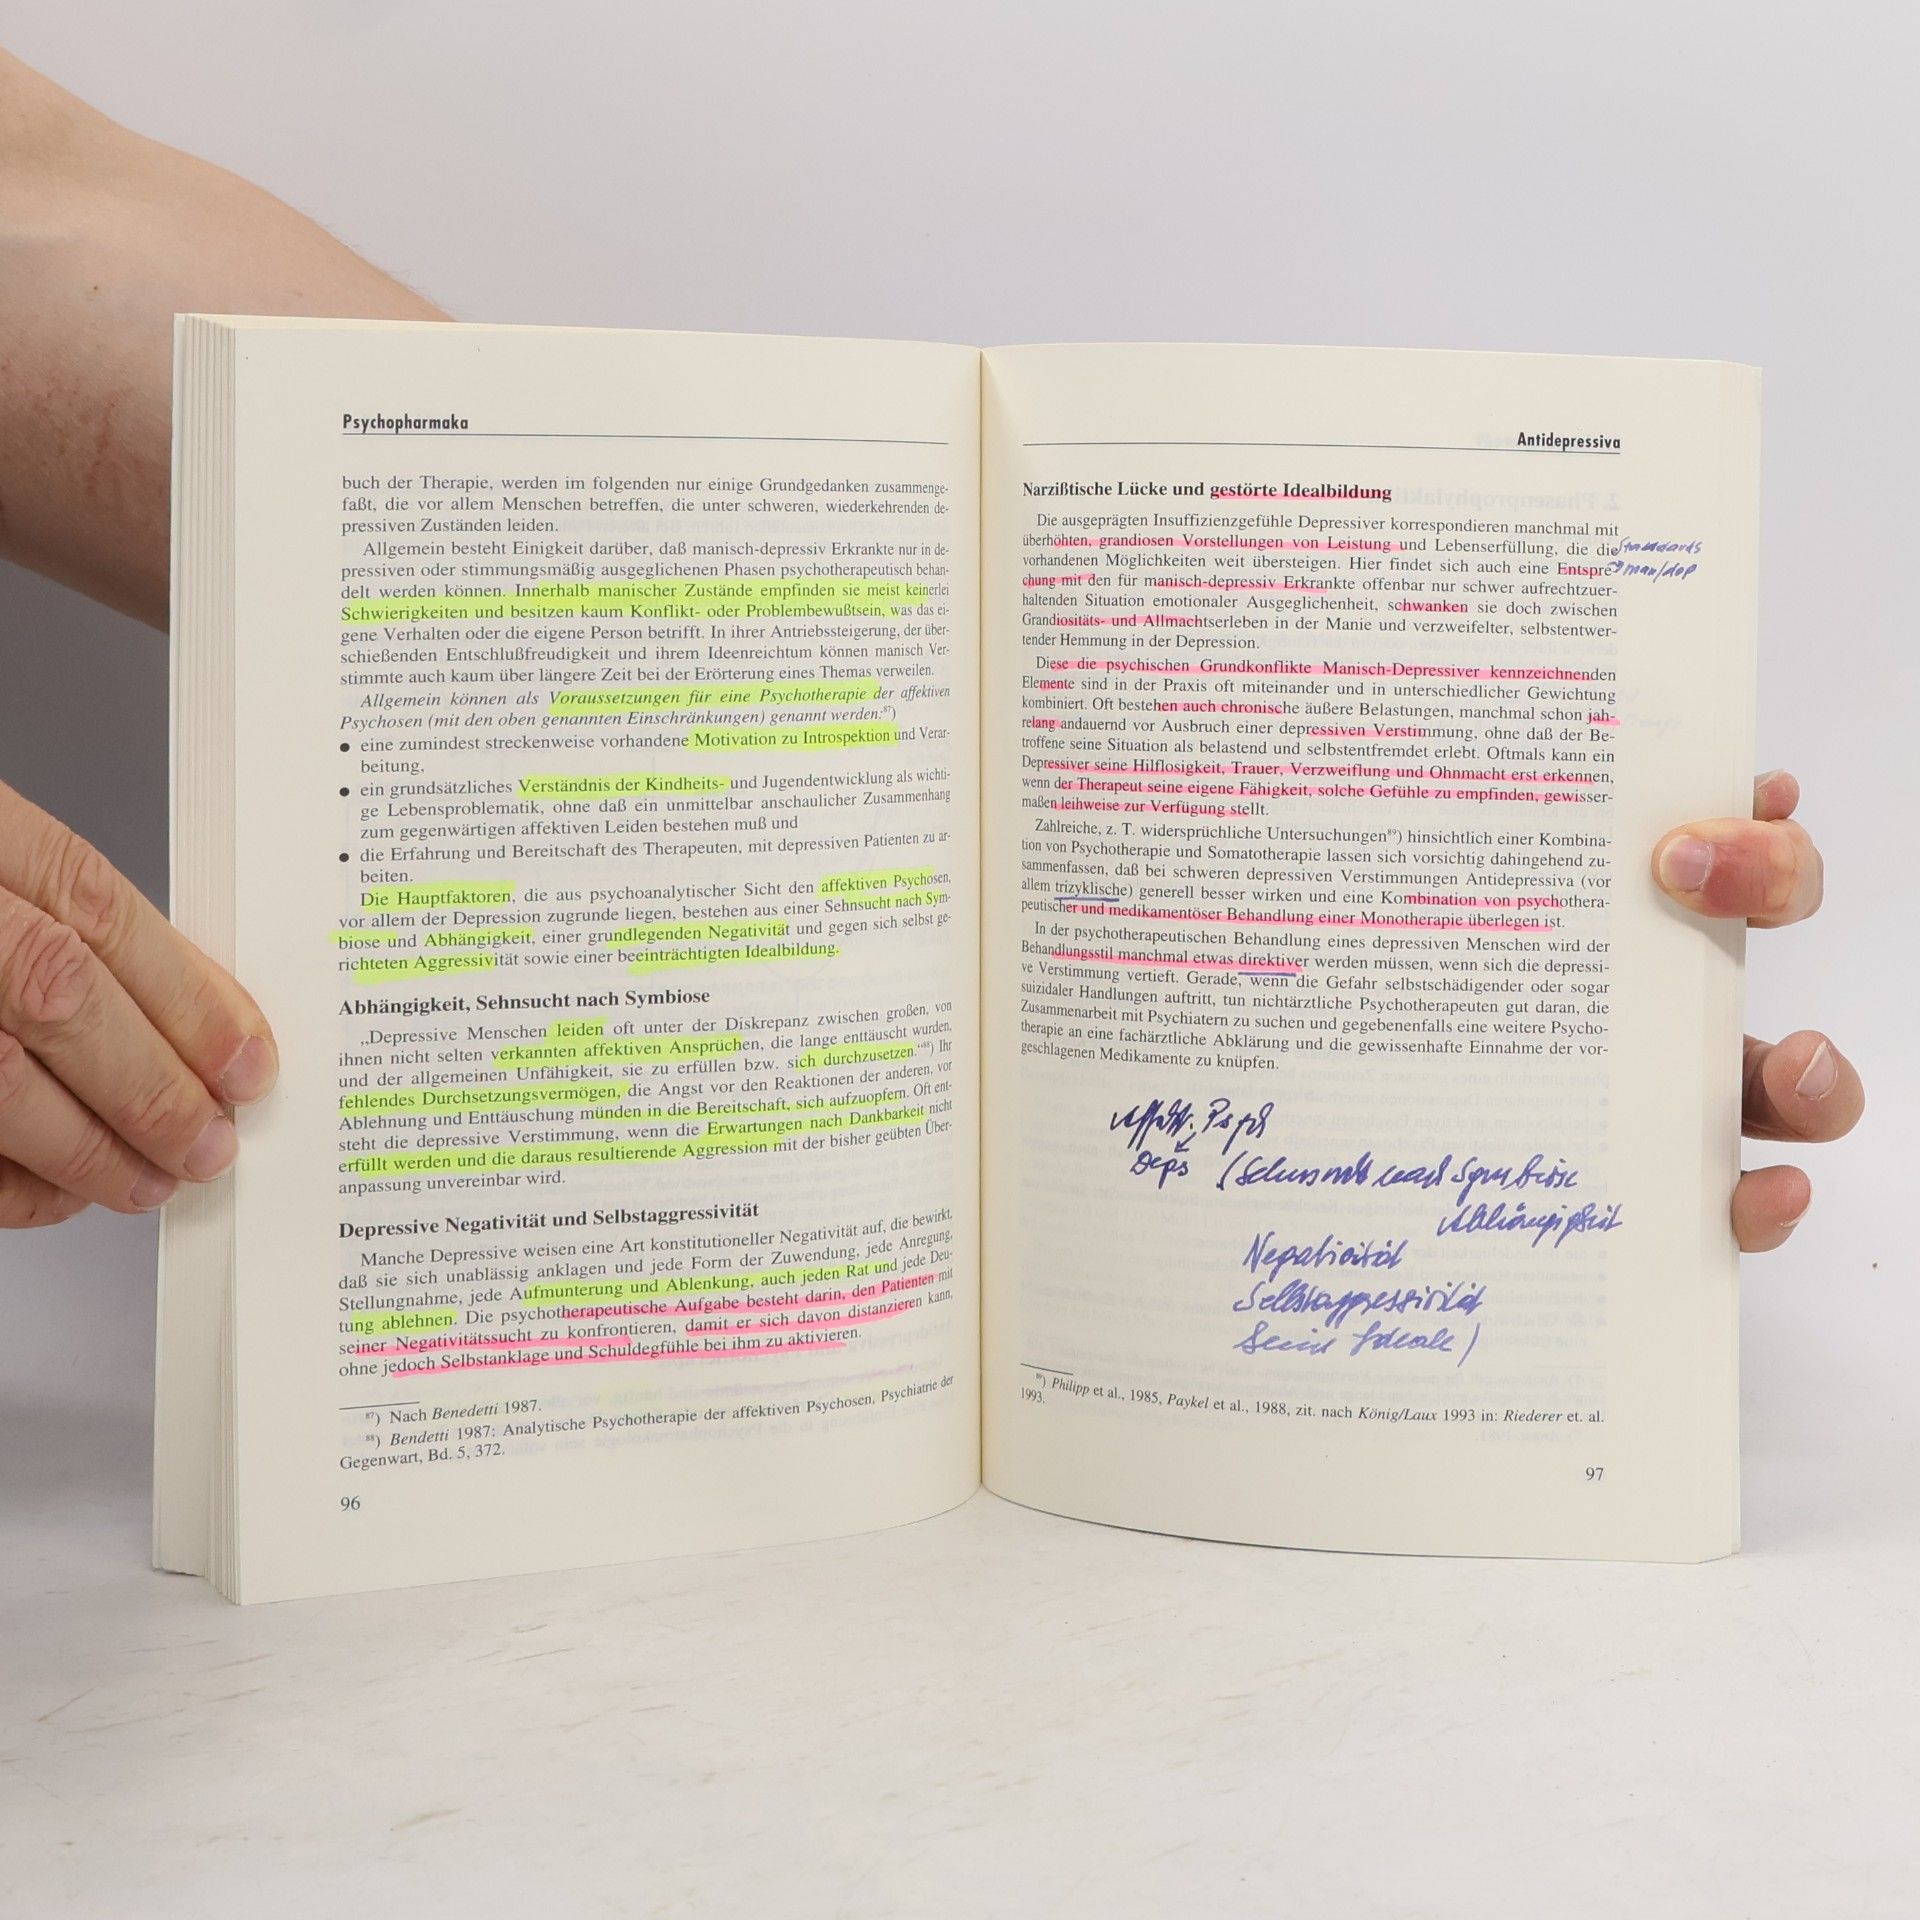 Psychopharmaka
buch der Therapie, werden im folgenden nur einige Grundgedanken zusammenge-
faßt, die vor allem Menschen betreffen, die unter schweren, wiederkehrenden de-
pressiven Zuständen leiden.
Allgemein besteht Einigkeit darüber, daß manisch-depressiv Erkrankte nur in de-
pressiven oder stimmungsmäßig ausgeglichenen Phasen psychotherapeutisch behan-
delt werden können. Innerhalb manischer Zustände empfinden sie meist keinerlei
Schwierigkeiten und besitzen kaum Konflikt- oder Problembewußtsein, was das ei-
gene Verhalten oder die eigene Person betrifft. In ihrer Antriebssteigerung, der über-
schießenden Entschlußfreudigkeit und ihrem Ideenreichtum können manisch Ver-
stimmte auch kaum über längere Zeit bei der Erörterung eines Themas verweilen.
Allgemein können als Voraussetzungen für eine Psychotherapie der affektiven
Psychosen (mit den oben genannten Einschränkungen) genannt werden:⁸⁷)
● eine zumindest streckenweise vorhandene Motivation zu Introspektion und Verar-
beitung,
● ein grundsätzliches Verständnis der Kindheits- und Jugendentwicklung als wichti-
ge Lebensproblematik, ohne daß ein unmittelbar anschaulicher Zusammenhang
zum gegenwärtigen affektiven Leiden bestehen muß und
● die Erfahrung und Bereitschaft des Therapeuten, mit depressiven Patienten zu ar-
beiten.
Die Hauptfaktoren, die aus psychoanalytischer Sicht den affektiven Psychosen,
vor allem der Depression zugrunde liegen, bestehen aus einer Sehnsucht nach Sym-
biose und Abhängigkeit, einer grundlegenden Negativität und gegen sich selbst ge-
richteten Aggressivität sowie einer beeinträchtigten Idealbildung.
Abhängigkeit, Sehnsucht nach Symbiose
„Depressive Menschen leiden oft unter der Diskrepanz zwischen großen, von
ihnen nicht selten verkannten affektiven Ansprüchen, die lange enttäuscht wurden,
und der allgemeinen Unfähigkeit, sie zu erfüllen bzw. sich durchzusetzen.“⁸⁸) Ihr
fehlendes Durchsetzungsvermögen, die Angst vor den Reaktionen der anderen, vor
Ablehnung und Enttäuschung münden in die Bereitschaft, sich aufzuopfern. Oft ent-
steht die depressive Verstimmung, wenn die Erwartungen nach Dankbarkeit nicht
erfüllt werden und die daraus resultierende Aggression mit der bisher geübten Über-
anpassung unvereinbar wird.
Depressive Negativität und Selbstaggressivität
Manche Depressive weisen eine Art konstitutioneller Negativität auf, die bewirkt,
daß sie sich unablässig anklagen und jede Form der Zuwendung, jede Anregung,
Stellungnahme, jede Aufmunterung und Ablenkung, auch jeden Rat und jede Deu-
tung ablehnen. Die psychotherapeutische Aufgabe besteht darin, den Patienten mit
seiner Negativitätssucht zu konfrontieren, damit er sich davon distanzieren kann,
ohne jedoch Selbstanklage und Schuldgefühle bei ihm zu aktivieren.
⁸⁷) Nach Benedetti 1987.
⁸⁸) Bendetti 1987: Analytische Psychotherapie der affektiven Psychosen, Psychiatrie der
Gegenwart, Bd. 5, 372.
96
Antidepressiva
Narzißtische Lücke und gestörte Idealbildung
Die ausgeprägten Insuffizienzgefühle Depressiver korrespondieren manchmal mit
überhöhten, grandiosen Vorstellungen von Leistung und Lebenserfüllung, die die
Standards
vorhandenen Möglichkeiten weit übersteigen. Hier findet sich auch eine Entspre-
→ man/dep
chung mit den für manisch-depressiv Erkrankte offenbar nur schwer aufrechtzuer-
haltenden Situation emotionaler Ausgeglichenheit, schwanken sie doch zwischen
Grandiositäts- und Allmachtserleben in der Manie und verzweifelter, selbstentwer-
tender Hemmung in der Depression.
Diese die psychischen Grundkonflikte Manisch-Depressiver kennzeichnenden
Elemente sind in der Praxis oft miteinander und in unterschiedlicher Gewichtung
kombiniert. Oft bestehen auch chronische äußere Belastungen, manchmal schon jah-
relang andauernd vor Ausbruch einer depressiven Verstimmung, ohne daß der Be-
troffene seine Situation als belastend und selbstentfremdet erlebt. Oftmals kann ein
Depressiver seine Hilflosigkeit, Trauer, Verzweiflung und Ohnmacht erst erkennen,
wenn der Therapeut seine eigene Fähigkeit, solche Gefühle zu empfinden, gewisser-
maßen leihweise zur Verfügung stellt.
Zahlreiche, z. T. widersprüchliche Untersuchungen⁸⁹) hinsichtlich einer Kombina-
tion von Psychotherapie und Somatotherapie lassen sich vorsichtig dahingehend zu-
sammenfassen, daß bei schweren depressiven Verstimmungen Antidepressiva (vor
allem trizyklische) generell besser wirken und eine Kombination von psychothera-
peutischer und medikamentöser Behandlung einer Monotherapie überlegen ist.
In der psychotherapeutischen Behandlung eines depressiven Menschen wird der
Behandlungsstil manchmal etwas direktiver werden müssen, wenn sich die depressi-
ve Verstimmung vertieft. Gerade, wenn die Gefahr selbstschädigender oder sogar
suizidaler Handlungen auftritt, tun nichtärztliche Psychotherapeuten gut daran, die
Zusammenarbeit mit Psychiatern zu suchen und gegebenenfalls eine weitere Psycho-
therapie an eine fachärztliche Abklärung und die gewissenhafte Einnahme der vor-
geschlagenen Medikamente zu knüpfen.
Affekt. Psych
↙
Deps (Sehnsucht nach Symbiose
Abhängigkeit
Negativität
Selbstaggressivität
Ideale)
⁸⁹) Philipp et al., 1985, Paykel et al., 1988, zit. nach König/Laux 1993 in: Riederer et. al.
1993.
97